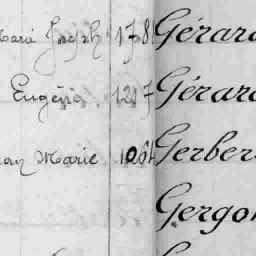 Marie Joseph 178 Gérard
Eugénie 1217 Gérard
Marie 1264 Gerber
Gergon